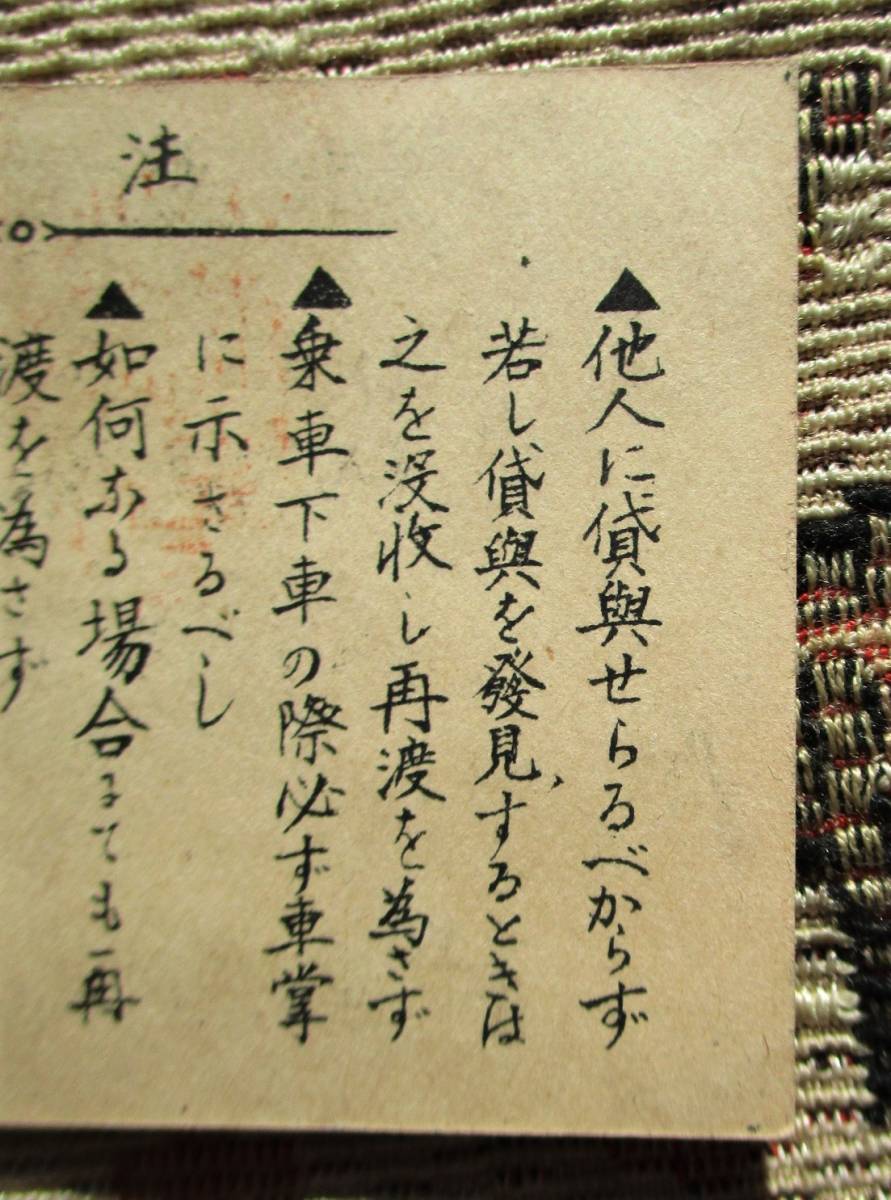 注
▲他人に貸與せらるべからず
若し貸與を發見するときは
之を没收し再渡を為さず
▲乗車下車の際必ず車掌
に示さるべし
▲如何なる場合にても再
渡を為さず